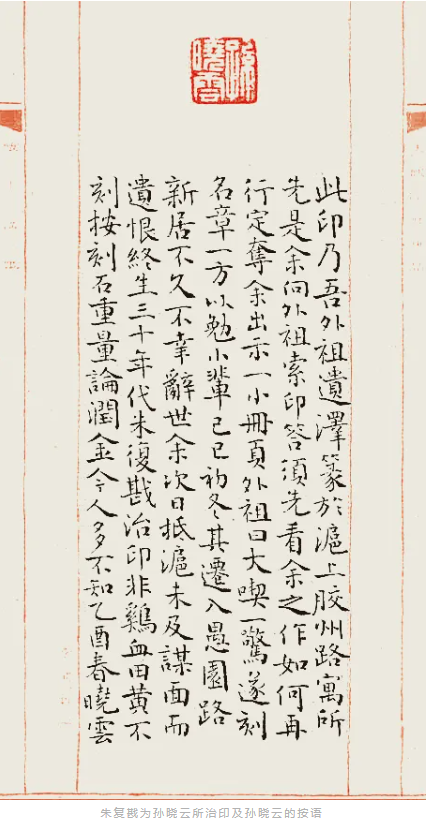 孫曉雲
此印乃吾外祖遺澤篆於滬上胶州路寓所
先是余向外祖索印答須先看余之作如何再
行定奪余出示一小冊頁外祖曰大喫一驚遂刻
名章一方以勉小輩己巳初冬其遷入愚園路
新居不久不幸辭世余次日抵滬未及謀面而
遺恨終生三十年代朱復戡治印非鷄血田黄不
刻按刻石重量論潤金今人多不知乙酉春曉雲
朱复戡为孙晓云所治印及孙晓云的按语